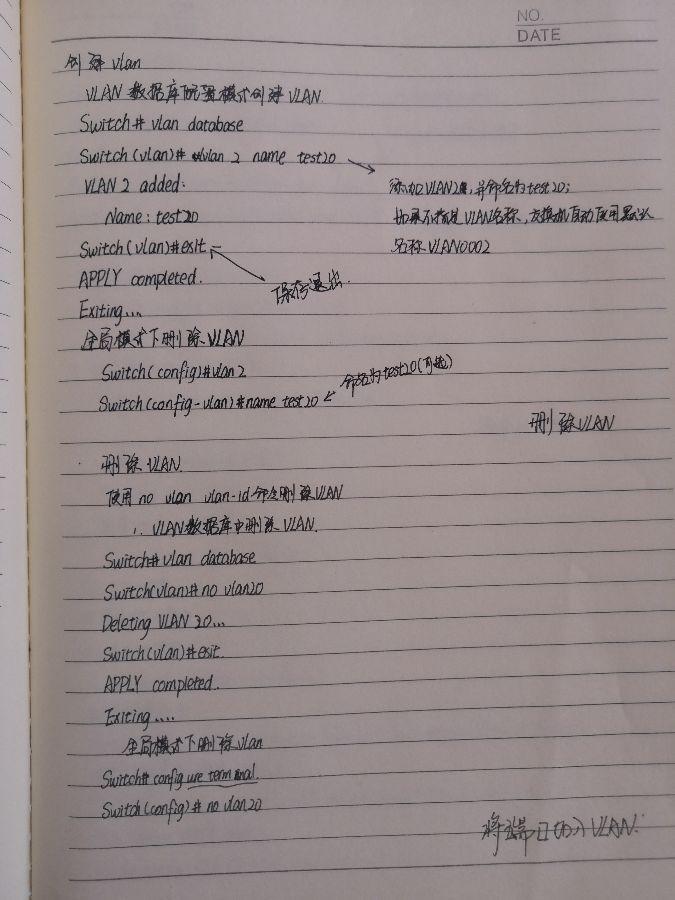 NO.
DATE
创建vlan
VLAN数据库配置模式创建VLAN.
Switch# vlan database
Switch(vlan)# vlan 2 name test20
添加VLAN2, 并命名为test20;
VLAN 2 added:
如果不指定VLAN名称, 交换机自动使用默认
Name: test20
名称VLAN0002
Switch(vlan)#exit
APPLY completed.
保存退出.
Exiting...
全局模式下删除VLAN
Switch(config)#vlan2
命名为test20(可选)
Switch(config-vlan)#name test20
删除VLAN
删除VLAN
使用no vlan vlan-id命令删除VLAN
1. VLAN数据库中删除VLAN.
Switch#vlan database
Switch(vlan)# no vlan20
Deleting VLAN 20...
Switch(vlan)#exit.
APPLY completed.
Exiting....
全局模式下删除vlan
Switch# configure terminal.
Switch(config)# no vlan20
将端口加入VLAN.